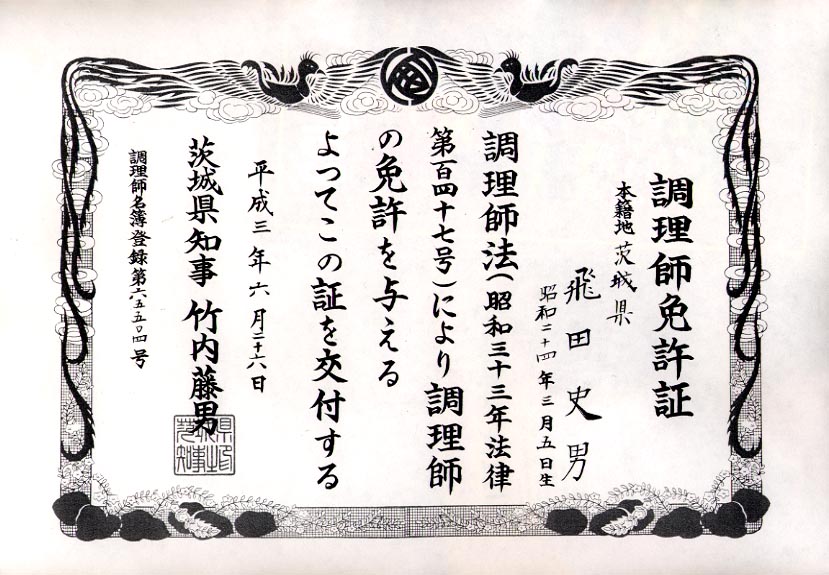 調理師免許証
本籍地 茨城県
飛田史男
昭和二十四年三月五日生
調理師法(昭和三十三年法律
第百四十七号)により調理師
の免許を与える
よってこの証を交付する
平成三年六月二十六日
茨城県知事 竹内藤男
調理師名簿登録第六五五〇四号